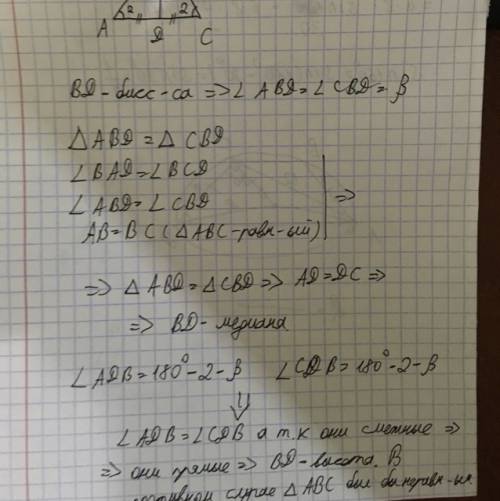 2 2
A D C
BD-бисс-са => ∠ABD=∠CBD=β
△ABD=△CBD
∠BAD=∠BCD
∠ABD=∠CBD =>
AB=BC (△ABC-равн-ый)
=> △ABD=△CBD => AD=DC =>
=> BD-медиана
∠ADB=180°-2-β ∠CDB=180°-2-β
⇓
∠ADB=∠CDB а т.к они смежные =>
=> они прямые => BD-высота. В
случае △ABC был бы